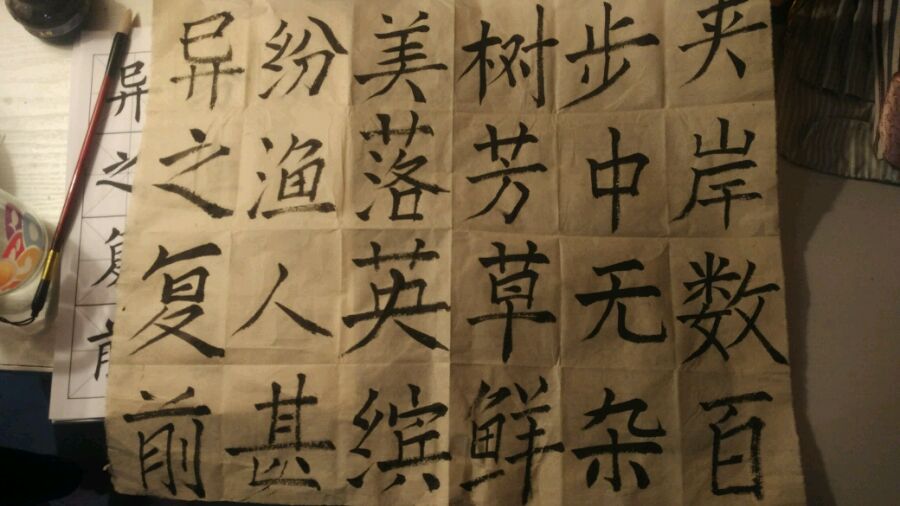 夹岸数百
步中无杂
树芳草鲜
美落英缤
纷渔人甚
异之复前
异之